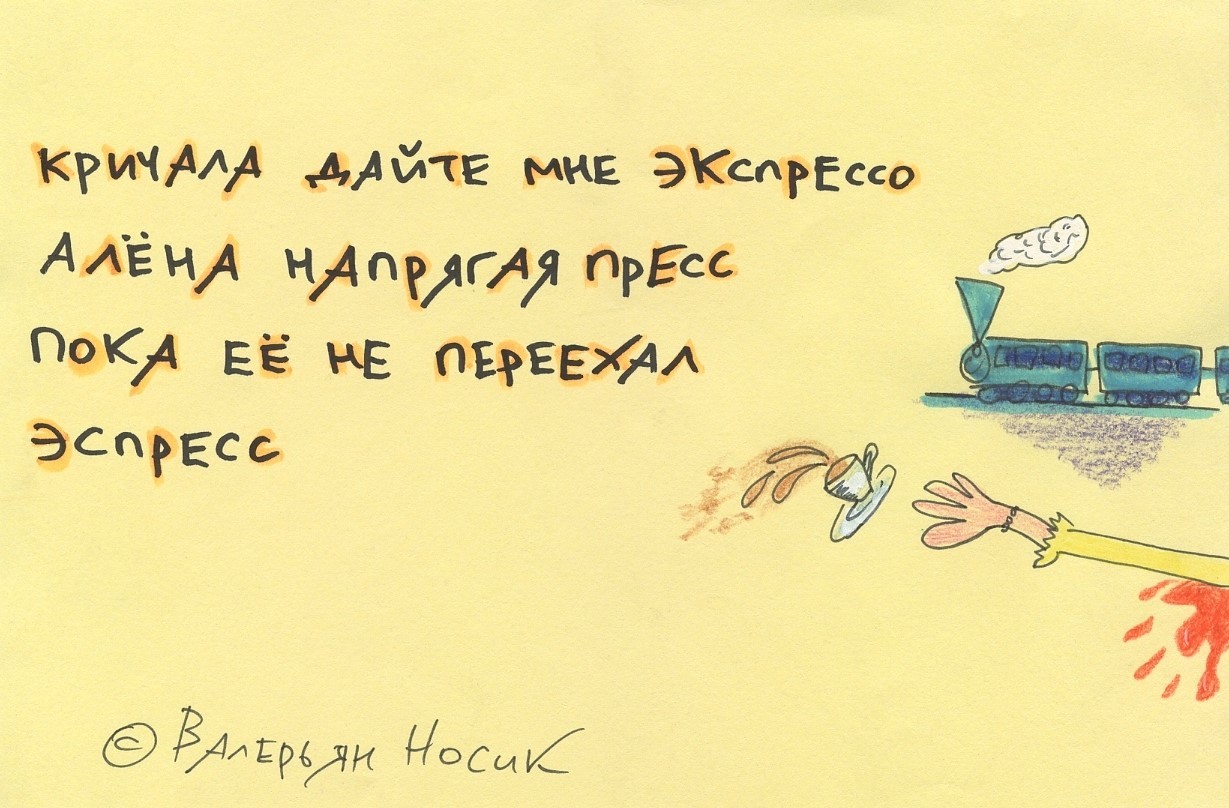 КРИЧАЛА ДАЙТЕ МНЕ ЭКСПРЕССО
АЛЁНА НАПРЯГАЯ ПРЕСС
ПОКА ЕЁ НЕ ПЕРЕЕХАЛ
ЭСПРЕСС
© ВАЛЕРЬЯН НОСИК